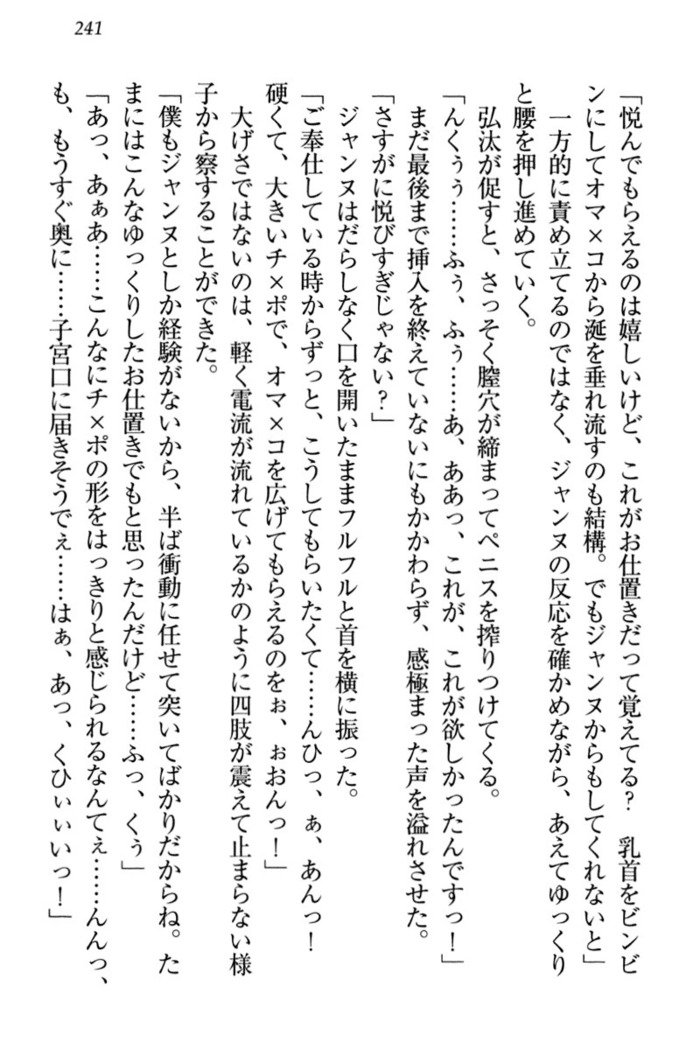 241
「悦んでもらえるのは嬉しいけど、これがお仕置きだって覚えてる？　乳首をビンビ
ンにしてオマ×コから涎を垂れ流すのも結構。でもジャンヌからもしてくれないと」
　一方的に責め立てるのではなく、ジャンヌの反応を確かめながら、あえてゆっくり
と腰を押し進めていく。
　弘汰が促すと、さっそく膣穴が締まってペニスを搾りつけてくる。
「んくぅぅ……ふぅ、ふぅ……あ、ああっ、これが、これが欲しかったんですっ！」
　まだ最後まで挿入を終えていないにもかかわらず、感極まった声を溢れさせた。
「さすがに悦びすぎじゃない？」
　ジャンヌはだらしなく口を開いたままフルフルと首を横に振った。
「ご奉仕している時からずっと、こうしてもらいたくて……んひっ、ぁ、あんっ！
硬くて、大きいチ×ポで、オマ×コを広げてもらえるのをぉ、ぉおんっ！」
　大げさではないのは、軽く電流が流れているかのように四肢が震えて止まらない様
子から察することができた。
「僕もジャンヌとしか経験がないから、半ば衝動に任せて突いてばかりだからね。た
まにはこんなゆっくりしたお仕置きでもと思ったんだけど……ふっ、くぅ」
「あっ、あぁあ……こんなにチ×ポの形をはっきりと感じられるなんてぇ……んんっ、
も、もうすぐ奥に……子宮口に届きそうでぇ……はぁ、あっ、くひぃぃいっ！」